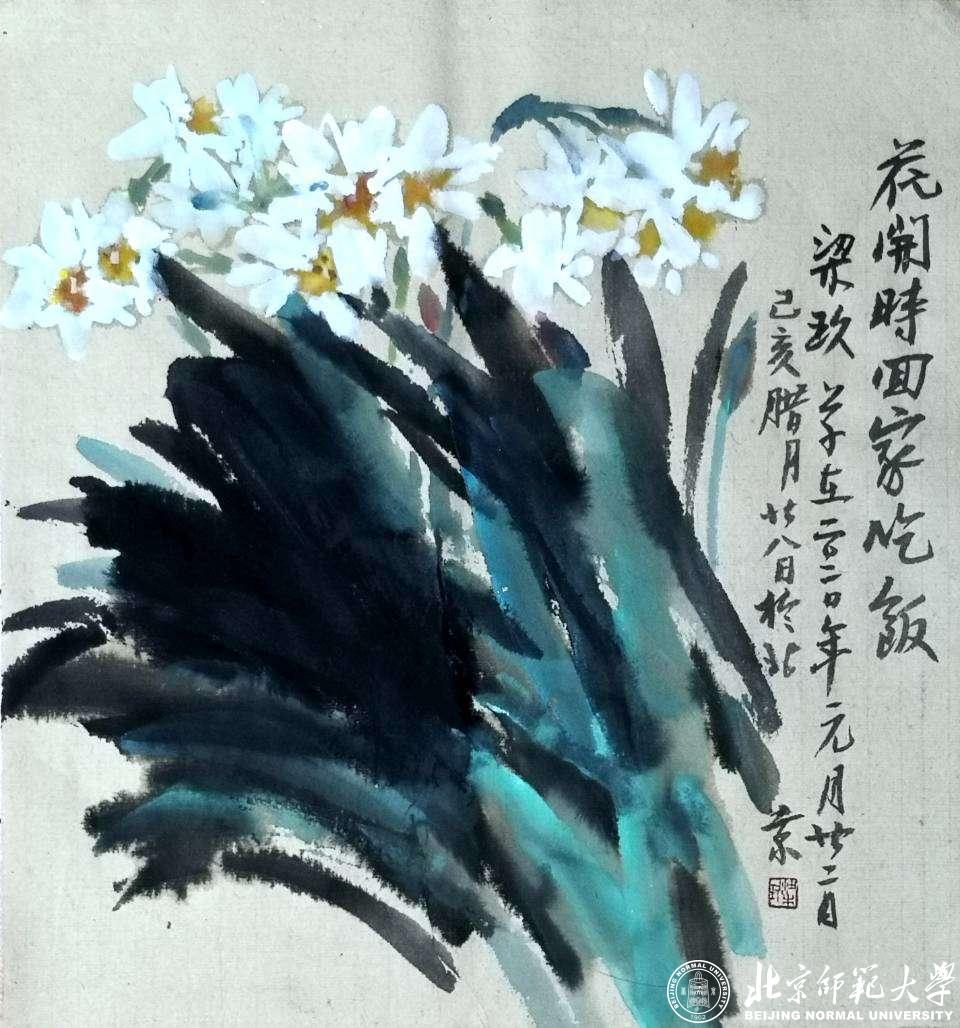 花開時回家吃飯
梁玖 草在二〇二〇年元月廿二日
己亥腊月廿八日於北
京
北京師範大學
BEIJING NORMAL UNIVERSITY
BEIJING NORMAL UNIVERSITY
1902